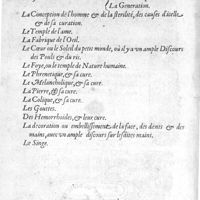 La Generation.
La Conception de l'homme & de la sterilité, des causes d'icelle
& de sa curation.
Le Temple de l'ame.
La Fabrique de l'Oeil.
Le Cœur ou le Soleil du petit monde, où il y a vn ample Discours
des Pouls & du ris.
Le Foye, ou le temple de Nature humaine.
Le Phrenetique, & sa cure.
Le Melancholique, & sa cure.
La Pierre, & sa cure.
La Colique, & sa cure.
Les Gouttes.
Des Hemorrhoides, & leur cure.
La decoration ou embellissement de la face, des dents & des
mains, auec vn ample discours sur lesdites maint.
Le Singe.